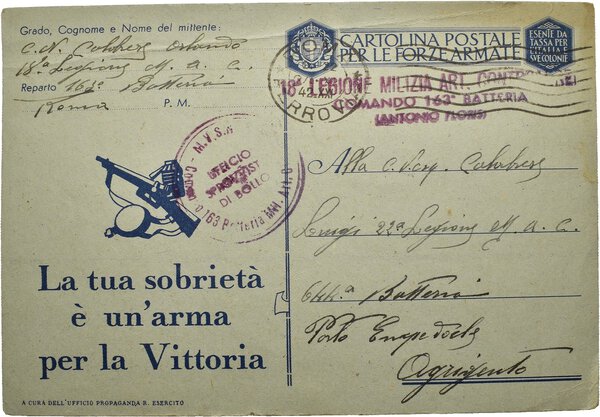 Grado, Cognome e Nome del mittente:
C. N. Calabrese Orlando
18ª Legione M. a. c.
Reparto 163ª Batteria
Roma P. M.
CARTOLINA POSTALE
PER LE FORZE ARMATE
ESENTE DA
TASSA PER
L'ITALIA
E SUE COLONIE
ROMA
FERROVIA
18ª LEGIONE MILIZIA ART. CONTRAEREI
COMANDO 163ª BATTERIA
(ANTONIO FLORIS)
M.V.S.N.
163 Batteria Mil. Art. C
UFFICIO
SPROVVIST
DI BOLLO
Alla C. N. Calabrese
Luigi 22ª Legione M. a. C.
Batteria
Porto Empedocle
Agrigento
La tua sobrietà
è un'arma
per la Vittoria
A CURA DELL'UFFICIO PROPAGANDA R. ESERCITO